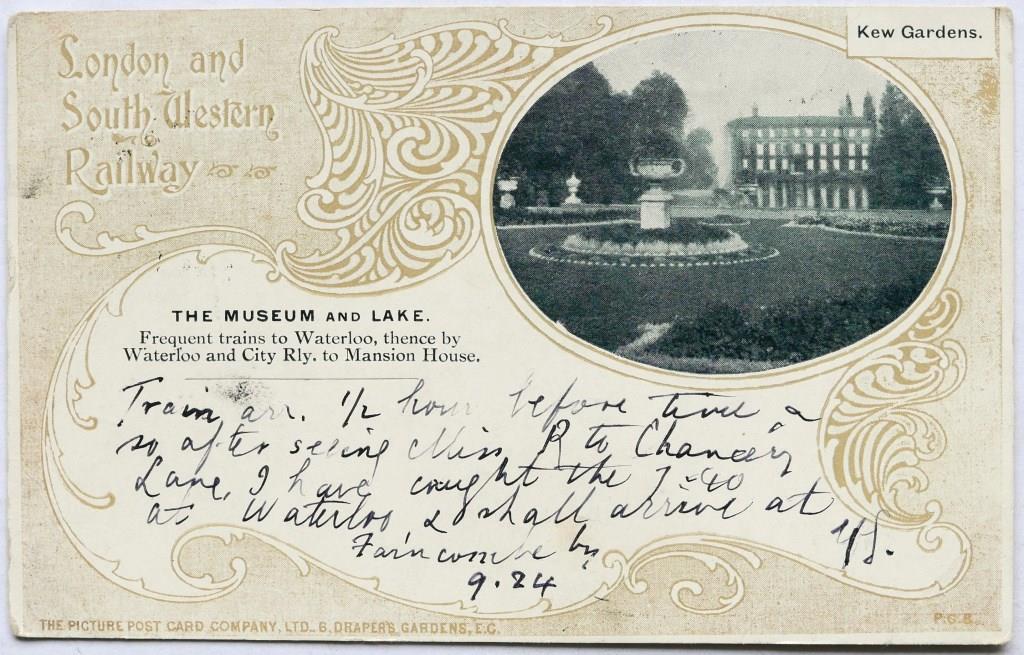 London and
South Western
Railway
Kew Gardens.
THE MUSEUM AND LAKE.
Frequent trains to Waterloo, thence by
Waterloo and City Rly. to Mansion House.
Train arr. 1/2 hour before time &
so after seeing Miss R to Chancery
Lane, I have caught the 7-40
at Waterloo & shall arrive at
by
9.24
THE PICTURE POST CARD COMPANY, LTD. 6, DRAPERS GARDENS, E.C.
P.G.8.